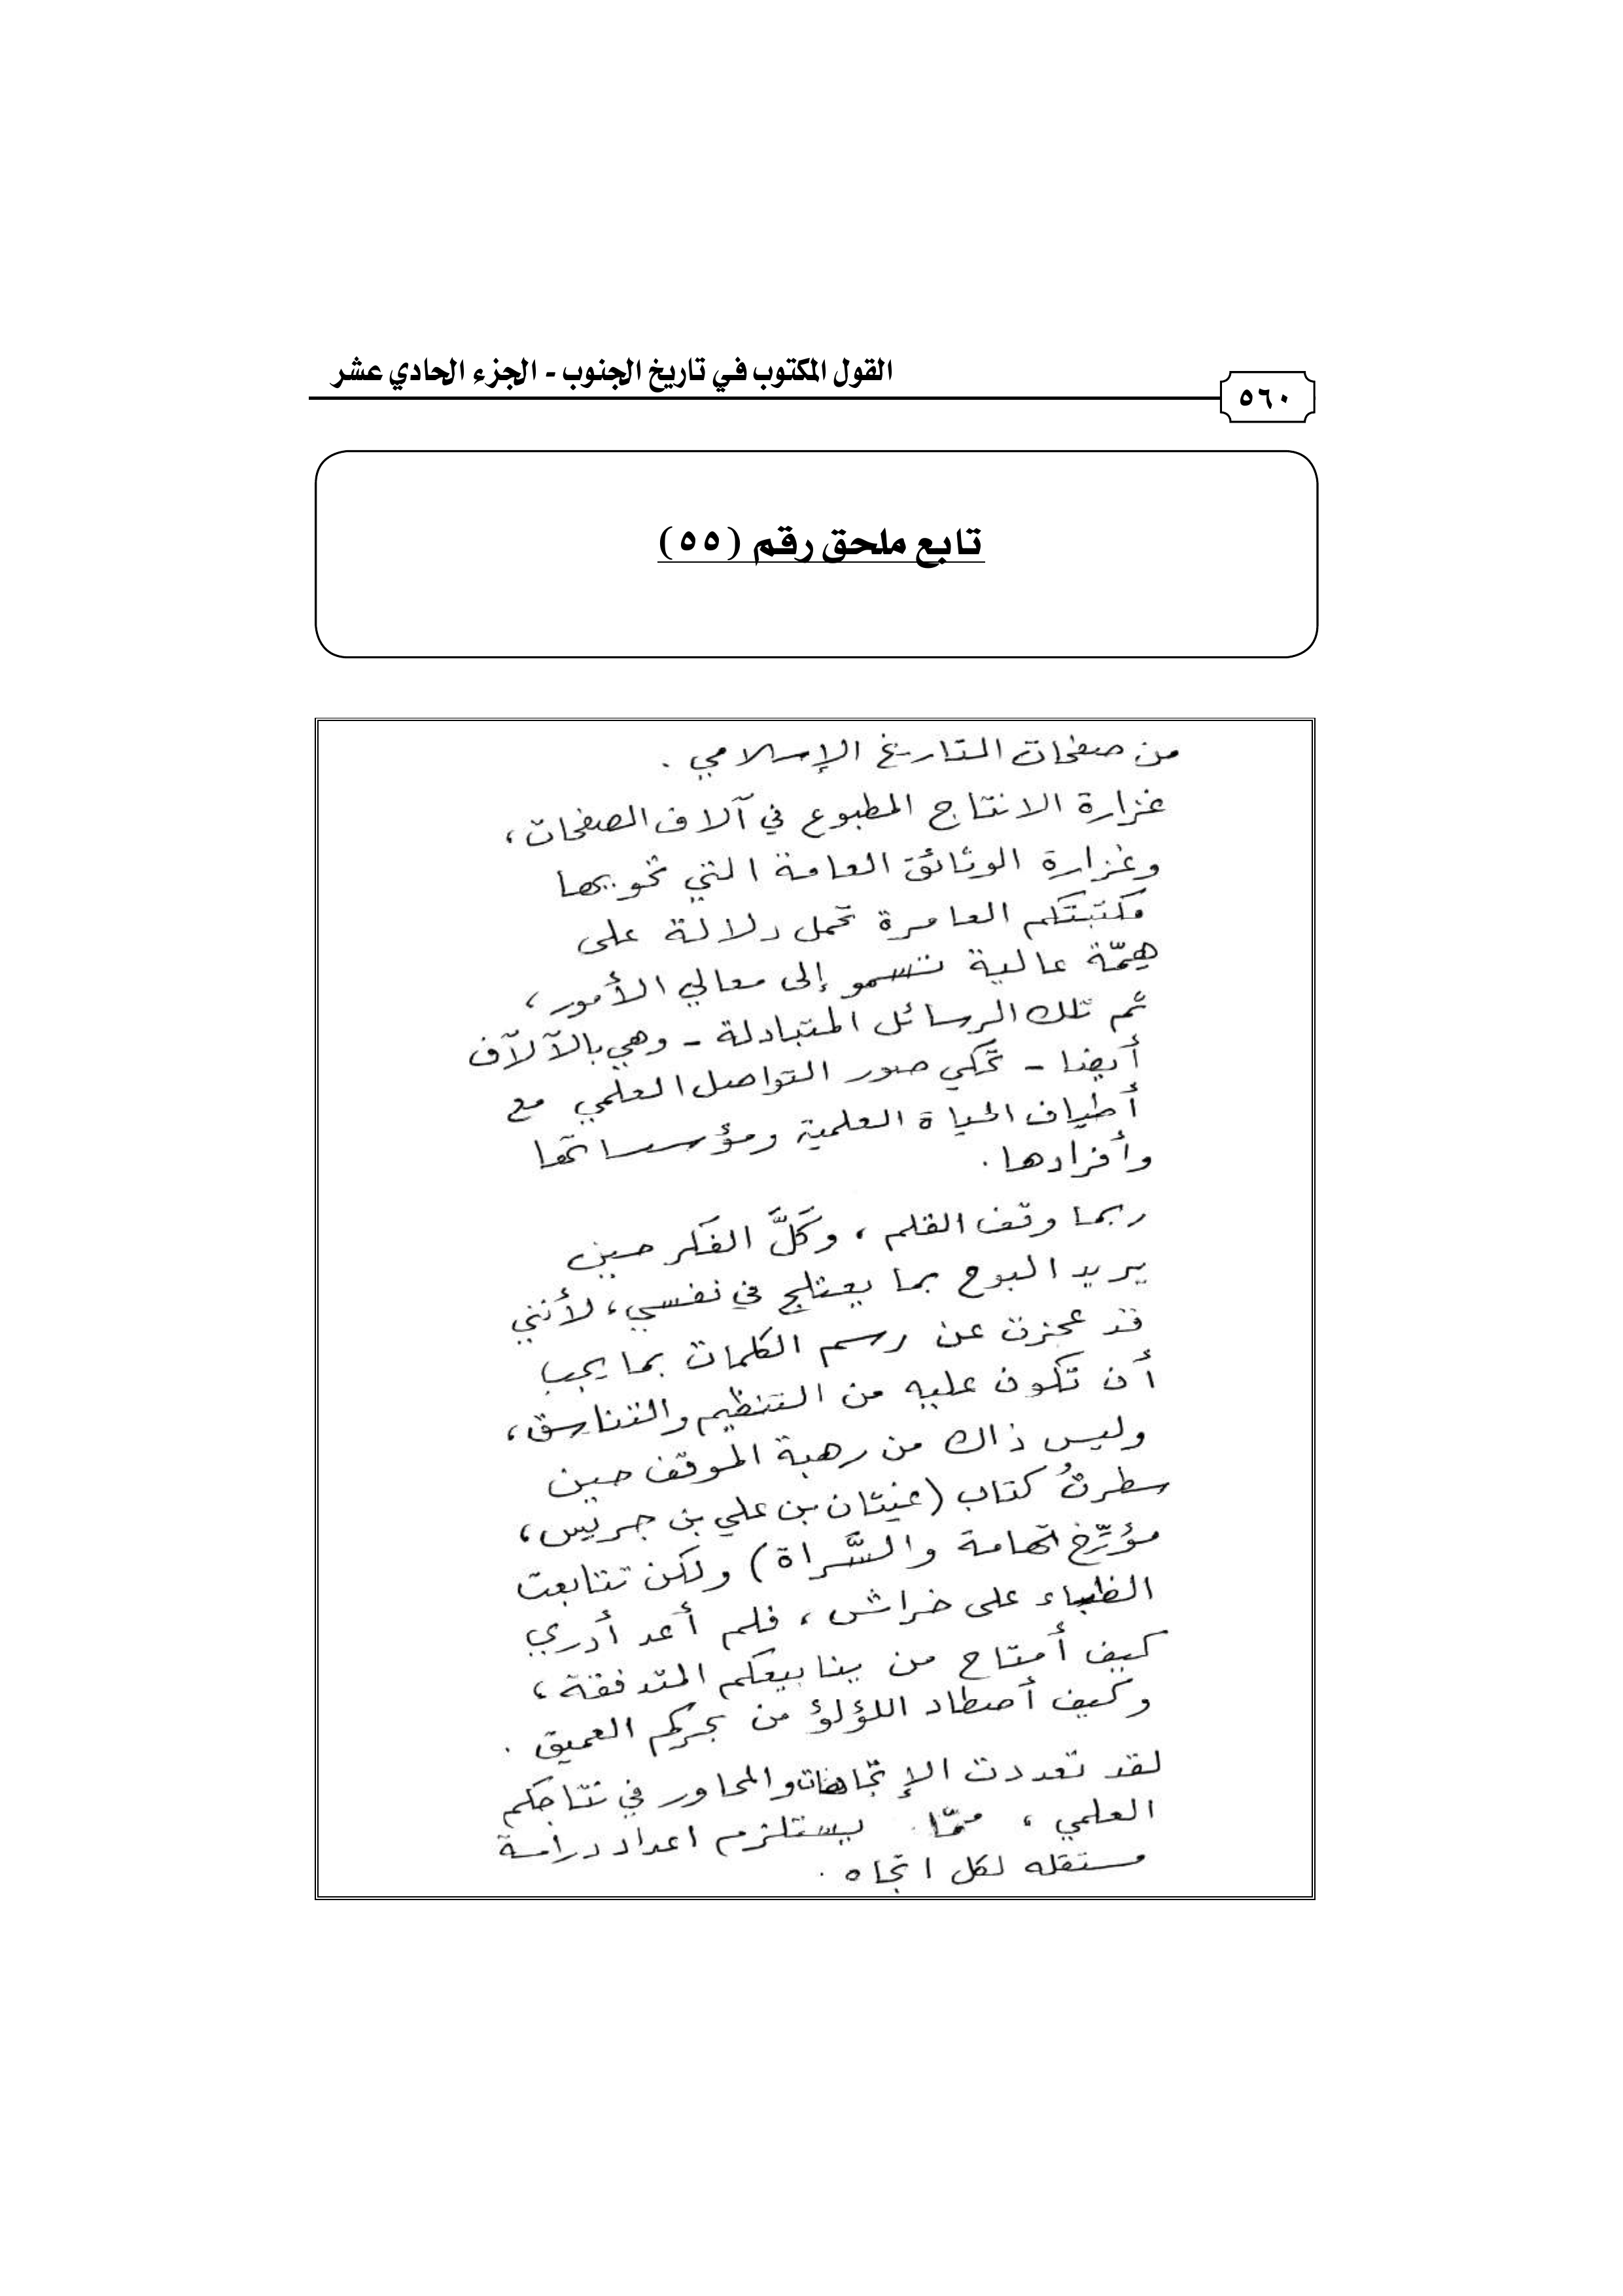 القول المكتوب في تاريخ الجنوب - الجزء الحادي عشر
٥٦٠
تابع ملحق رقم (٥٥)
من صفحات التاريخ الإسلامي .
غزارة الانتاج المطبوع في آلاف الصفحات ،
وغزارة الوثائق العامة التي تحويها
مكتبتكم العامرة تحمل دلالة على
هِمّة عالية تسمو إلى معالي الأمور ،
ثم تلك الرسائل المتبادلة - وهي بالآلآف
أيضا - تحكي صور التواصل العلمي مع
أطياف الحياة العلمية ومؤسساتها
وأفرادها .
ربما وقف القلم ، وكَلَّ الفكر حين
يريد البوح بما يعتلج في نفسي ، لأنني
قد عجزت عن رسم الكلمات بما يجب
أن تكون عليه من التنظيم والتناسق ،
وليس ذاك من رهبة الموقف حين
سطرتُ كتاب (غيثان بن علي بن جريس ،
مؤرِّخ تهامة والسَّراة) ولكن تتابعت
الظباء على خراش ، فلم أعد أدري
كيف أمتاح من ينابيعكم المتدفقة ،
وكيف أصطاد اللؤلؤ من بحركم العميق .
لقد تعددت الإتجاهات والمحاور في نتاجكم
العلمي ، ممّا يستلزم اعداد دراسة
مستقله لكل اتجاه .